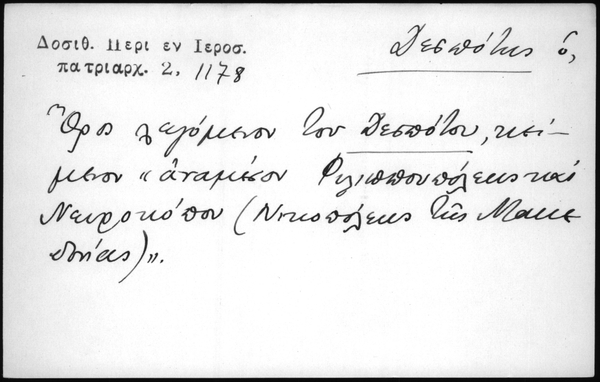 Δοσιθ. Περι εν Ιεροσ.
πατριαρχ. 2, 1178
Δεσπότης ὁ,
Ὄρος λεγόμενον τοῦ Δεσπότου, κεί-
μενον «ἀναμέσον Φιλιππουπόλεως καὶ
Νευροκόπου (Νικοπόλεως τῆς Μακε
δονίας)».